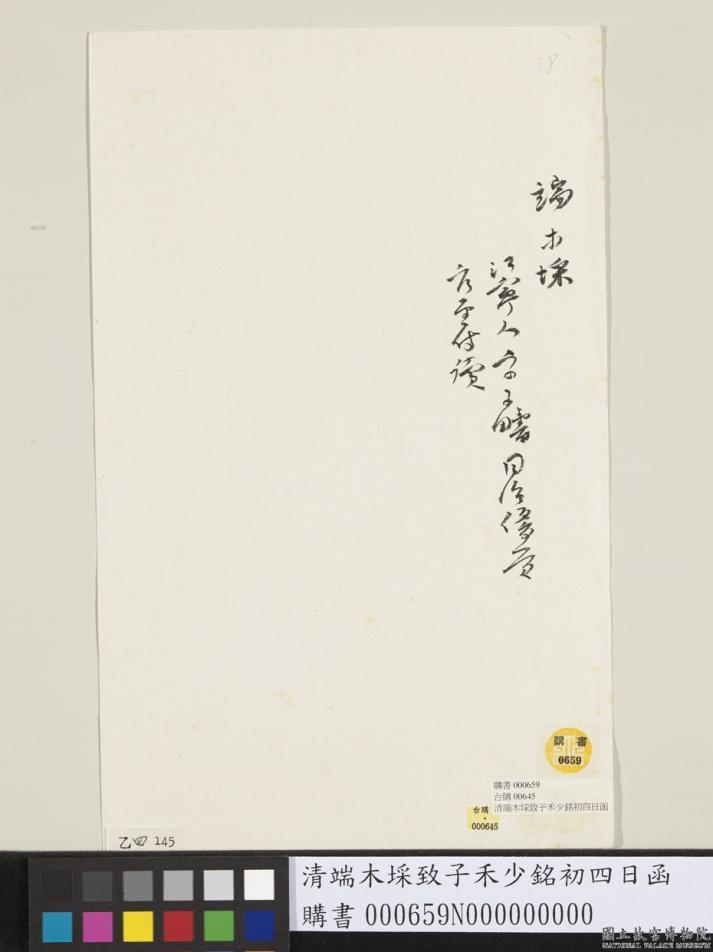 38
端木埰
江寧人字子疇同治優貢
官至侍讀
購書
0659
購書 000659
台購 00645
清端木埰致子禾少銘初四日函
台購
000645
乙四 145
清端木埰致子禾少銘初四日函
購書 000659N000000000
國立故宮博物院
NATIONAL PALACE MUSEUM